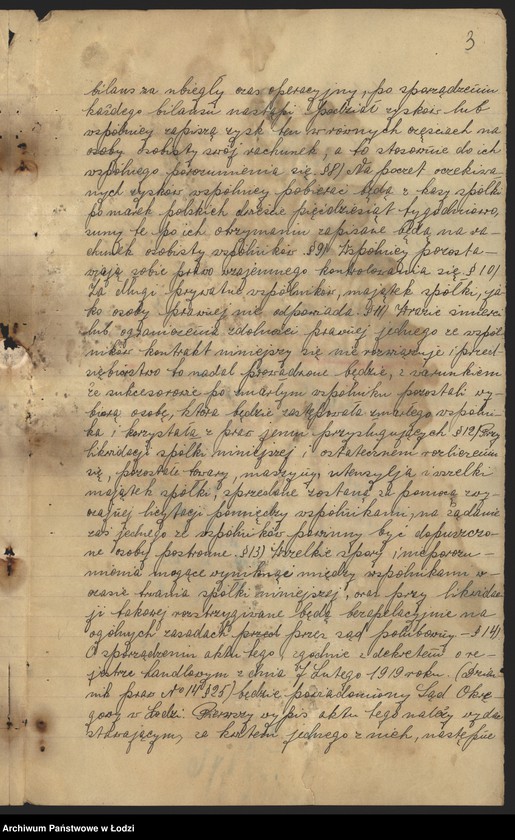 3
bilans za ubiegły czas operacyjny, po sporządzeniu
każdego bilansu nastąpi podział zysków lub
wspólnicy zapiszą zysk ten w równych częściach na
osoby osobisty swój rachunek, a to stosownie do ich
wspólnego porozumienia się. § 8) Na poczet oczekiwa-
nych zysków wspólnicy pobierać będą z kasy spółki
po marek polskich dwieście pięćdziesiąt tygodniowo,
sumy te po ich otrzymaniu zapisane będą na ra-
chunek osobisty wspólników. § 9) Wspólnicy pozosta-
wiają sobie prawo wzajemnego kontrolowania się. § 10)
Za długi prywatne wspólników, majątek spółki, ja-
ko osoby prawnej nie odpowiada. § 11) W razie śmierci
lub ograniczenia zdolności prawnej jednego ze wspól-
ników kontrakt niniejszy się nie rozwiązuje i przed-
siębiorstwo to nadal prowadzone będzie, z warunkiem
że sukcesorowie po zmarłym wspólniku pozostali wy-
biorą osobę, która będzie zastępowała zmarłego wspólni-
ka i korzystała z praw jemu przysługujących. § 12) Przy
likwidacji spółki niniejszej i ostatecznem rozliczeniu
się, pozostałe towary, maszyny, utensylja i wszelki
majątek spółki, sprzedane zostaną za pomocą zwy-
czajnej licytacji pomiędzy wspólnikami, na żądanie
zaś jednego ze wspólników powinny być dopuszczo-
ne osoby postronne. § 13) Wszelkie spory i nieporozu-
mienia mogące wyniknąć między wspólnikami w
czasie trwania spółki niniejszej, oraz przy likwida-
cji takowej rozstrzygane będą bezapelacyjnie na
ogólnych zasadach przed przez sąd polubowny. § 14)
O sporządzeniu aktu tego, zgodnie z dekretem o re-
jestrze handlowym z dnia 7 Lutego 1919 roku. (Dzien-
nik praw No 14 § 25) będzie powiadomiony Sąd Okrę-
gowy w Łodzi. Pierwszy wypis aktu tego należy wydać
stawającym, za kosztem jednego z nich, następne
Archiwum Państwowe w Łodzi